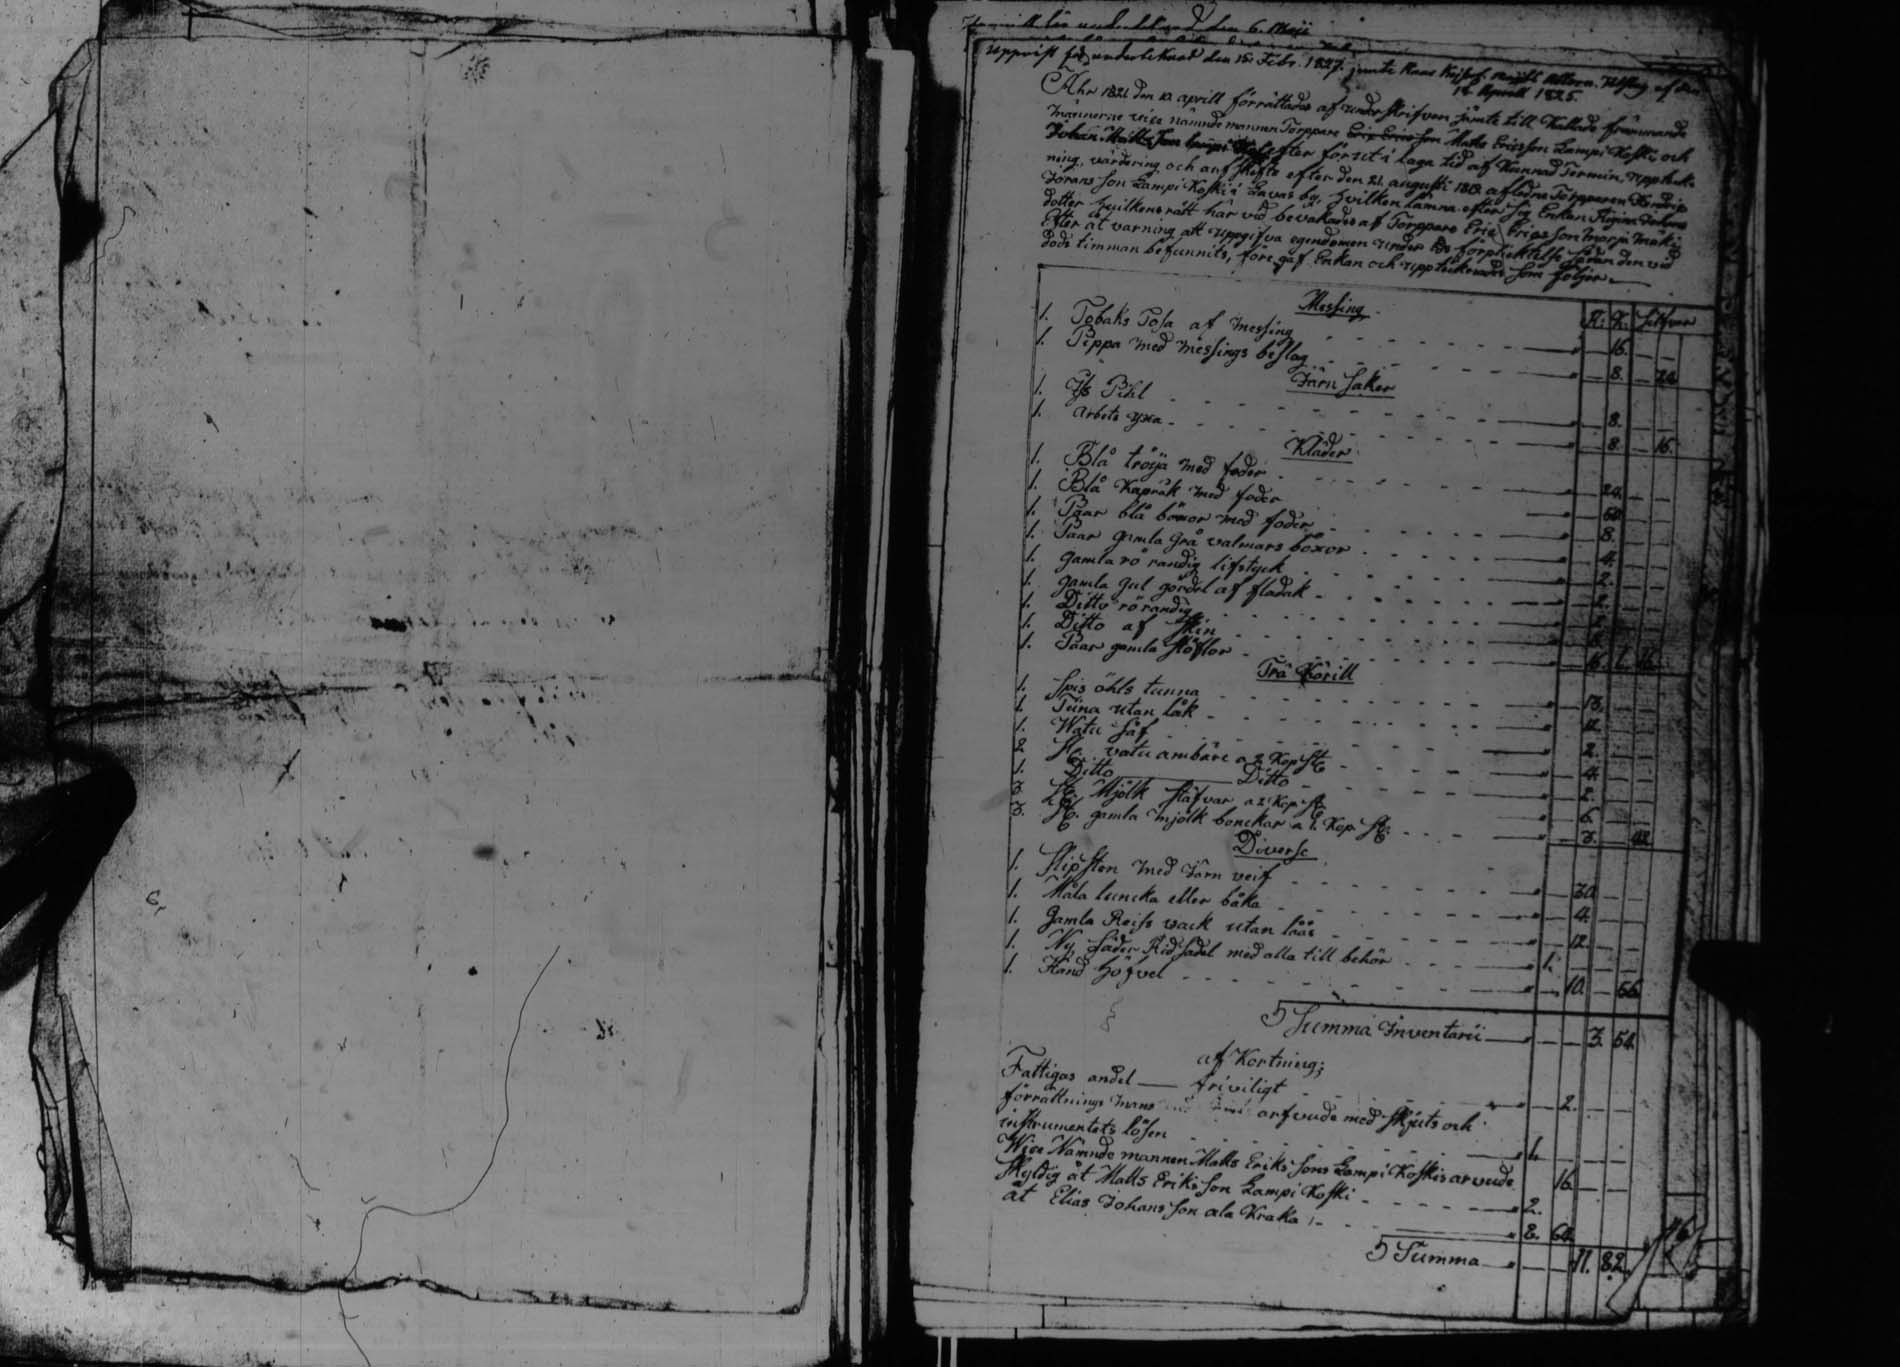 den 6. Maji
Uppvist och underteknat den 15 Febr. 1827. jemte Hans Kejserl. Majst. Utslag af den
18 April 1825.
Åhr 1821 den 10 aprill förrättades af under skrifven jämte till Kallade frammande
männerne vice nämnde mannen Torppare Eric Erics Son Matts Ericsson Lampi Koski och
Johan Matts Son Lampi efter förut i laga tid af Kunnad Termin, uppteck-
ning, värdering och arf skifte efter den 21. augusti 1818 afledne Torpparen Hendrip
Jörans Son Lampi Koski i Lavas by, hvilken lämna efter sig Enkan Regina Johans
dotter hvilkens rätt här vid bevakades af Torppare Eric Erics son Marja mäki
Efter åt varning att uppgifva egendomen under Eds förpliktelse sådan den vid
döds timman befunnits, före gaf Enkan och upptecknades som följer
Messing
R: K: Silfver
1. Tobaks Dosa af messing 16.
1. Pippa med messings beslag 8. 24
Järn Saker
1. Jss Pihl 8.
1. Arbets yxa 8. 16.
Kläder
1. Blå tröija med foder 20.
1. Blå Kapråk med foder 60.
1. Paar blå böxor med foder 8.
1. Paar gamla grå valmars böxor 4.
1. gamla rö randig lifstyck 2.
1. gamla gul gördel af fladak 2.
1. Ditto rö randig 2.
1. Ditto af Skin
1. Paar gamla stöflor 16. 1. 16
Trä Kärill
1. Spis öhls tunna 13.
1. Tiina utan låk 12.
1. Watu Såf 2.
2. St. vatu ambäre a 2 Kop St 4.
1. Ditto Ditto 2.
3. St. Mjölk Stäfvar a 2 Kop St 6.
3. St. gamla mjölk bonckar a 1. Kop St. 3. 42
Diverse
1. Slip Sten med Järn veif 30
1. Måla luncka eller båka 4.
1. Gamla Reiss vack utan låås 12.
1. Ny Läder Rid Sadel med alla till behör 1.
1. Hand Höfvel 10. 56
Summa Inventarii 3. 54.
af Kortning;
Fattigas andel friviligt 2.
förrättnings mans arfvude med Skjuts och
instrumentets lösen 1.
Wice Nämnde mannen Matts Eriks Sons Lampi Koskis arvude 16.
Skyldig åt Matts Eriks Son Lampi Koski 2.
åt Elias Johans Son ala Kraka 8. 64.
Summa 11. 82.